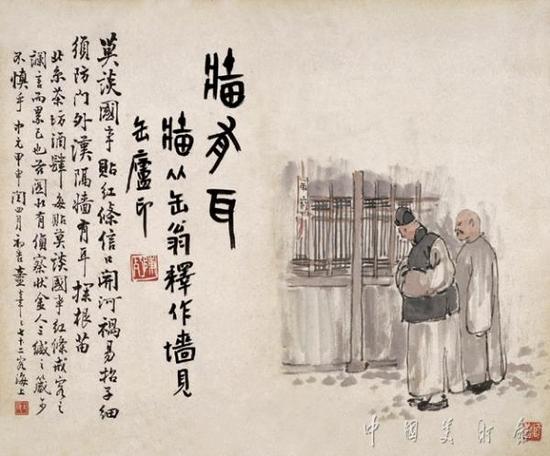 牆有耳
牆从缶翁釋作墻見
缶廬印
莫談國事貼紅條信口開河禍易招子細
須防門外漢隔牆有耳探根苗
北京茶坊酒肆每貼莫談國事紅條戒客之
讕言而累己也 圖 有偵察狀金人三緘之箴可
不慎乎 中元甲申閏四月初吉 七十二客海上
中國美術館